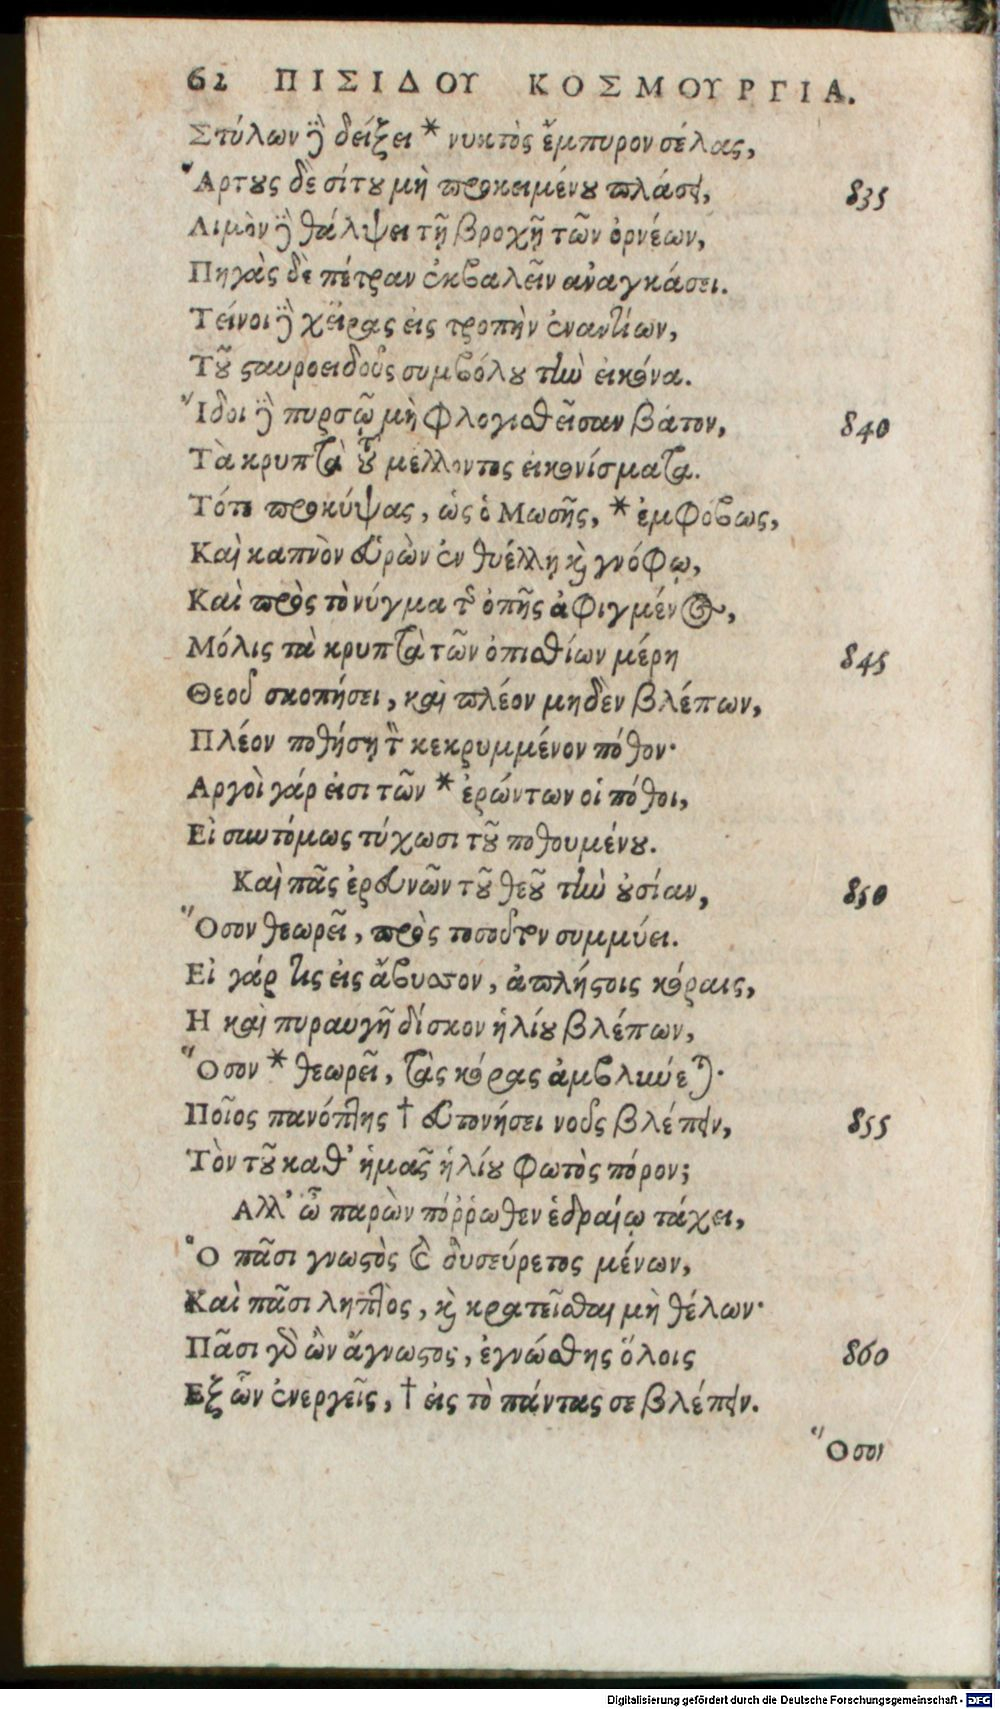 62 ΠΙΣΙΔΟΥ ΚΟΣΜΟΥΡΓΙΑ.
Στύλων δὲ δείξει * νυκτὸς ἔμπυρον σέλας,
Ἄρτους δὲ σίτου μὴ προκειμένου πλάσει, 835
Λιμὸν δὲ θάλψει τῇ βροχῇ τῶν ὀρνέων,
Πηγὰς δὲ πέτραν ἐκβαλεῖν ἀναγκάσει.
Τείνοι δὲ χεῖρας εἰς τροπὴν ἐναντίων,
Τοῦ σταυροειδοῦς συμβόλου τὴν εἰκόνα.
Ἴδοι δὲ πυρσῷ μὴ φλογισθεῖσαν βάτον, 840
Τὰ κρυπτὰ τοῦ μέλλοντος εἰκονίσματα.
Τότε προκύψας, ὡς ὁ Μωσῆς, * ἐμφόβως,
Καὶ καπνὸν εὑρὼν ἐν θυέλλῃ καὶ γνόφῳ,
Καὶ πρὸς τὸ νύγμα τῆς ὀπῆς ἀφιγμένος,
Μόλις τὰ κρυπτὰ τῶν ὀπισθίων μέρη 845
Θεοῦ σκοπήσει, καὶ πλέον μηδὲν βλέπων,
Πλέον ποθήσῃ τὸν κεκρυμμένον πόθον·
Αργοὶ γάρ εἰσι τῶν * ἐρώντων οἱ πόθοι,
Εἰ συντόμως τύχωσι τοῦ ποθουμένου.
Καὶ πᾶς ἐρευνῶν τοῦ θεοῦ τὴν οὐσίαν, 850
Ὅσον θεωρεῖ, πρὸς τοσοῦτον συμμύει.
Εἰ γάρ τις εἰς ἄβυσσον, ἀπλήστοις κόραις,
Η καὶ πυραυγῆ δίσκον ἡλίου βλέπων,
Ὅσον * θεωρεῖ, τὰς κόρας ἀμβλύνεται·
Ποῖος πανόπτης † εὐτονήσει νοῦς βλέπειν, 855
Τὸν τοῦ καθ' ἡμᾶς ἡλίου φωτὸς πόρον;
Αλλ' ὦ παρὼν πόῤῥωθεν ἑδραίῳ τάχει,
Ὁ πᾶσι γνωστὸς καὶ δυσεύρετος μένων,
Καὶ πᾶσι ληπτὸς, καὶ κρατεῖσθαι μὴ θέλων·
Πᾶσι γὰρ ὢν ἄγνωστος, ἐγνώσθης ὅλοις 860
Εξ ὧν ἐνεργεῖς, † εἰς τὸ πάντας σε βλέπειν.
Ὅσοι
Digitalisierung gefördert durch die Deutsche Forschungsgemeinschaft - DFG